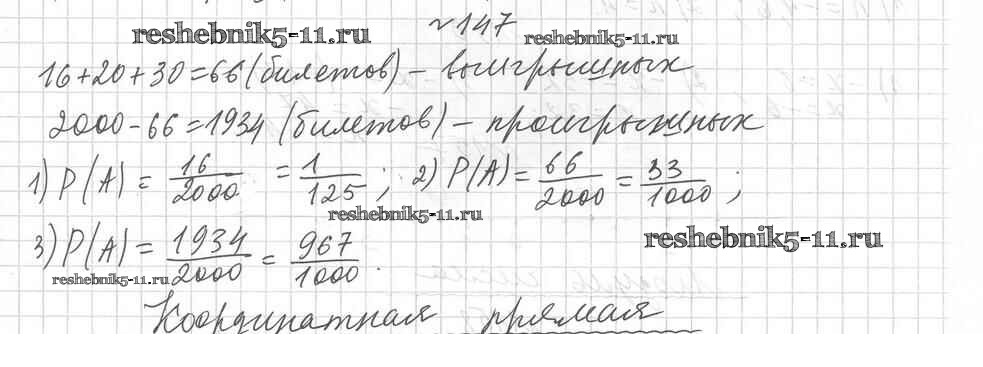 №147
reshebnik5-11.ru reshebnik5-11.ru
16+20+30=66 (билетов) - выигрышных
2000-66=1934 (билетов) - проигрышных
1) P(A) = 16/2000 = 1/125 ; 2) P(A) = 66/2000 = 33/1000 ;
reshebnik5-11.ru
reshebnik5-11.ru
3) P(A) = 1934/2000 = 967/1000 .
reshebnik5-11.ru
Координатная прямая